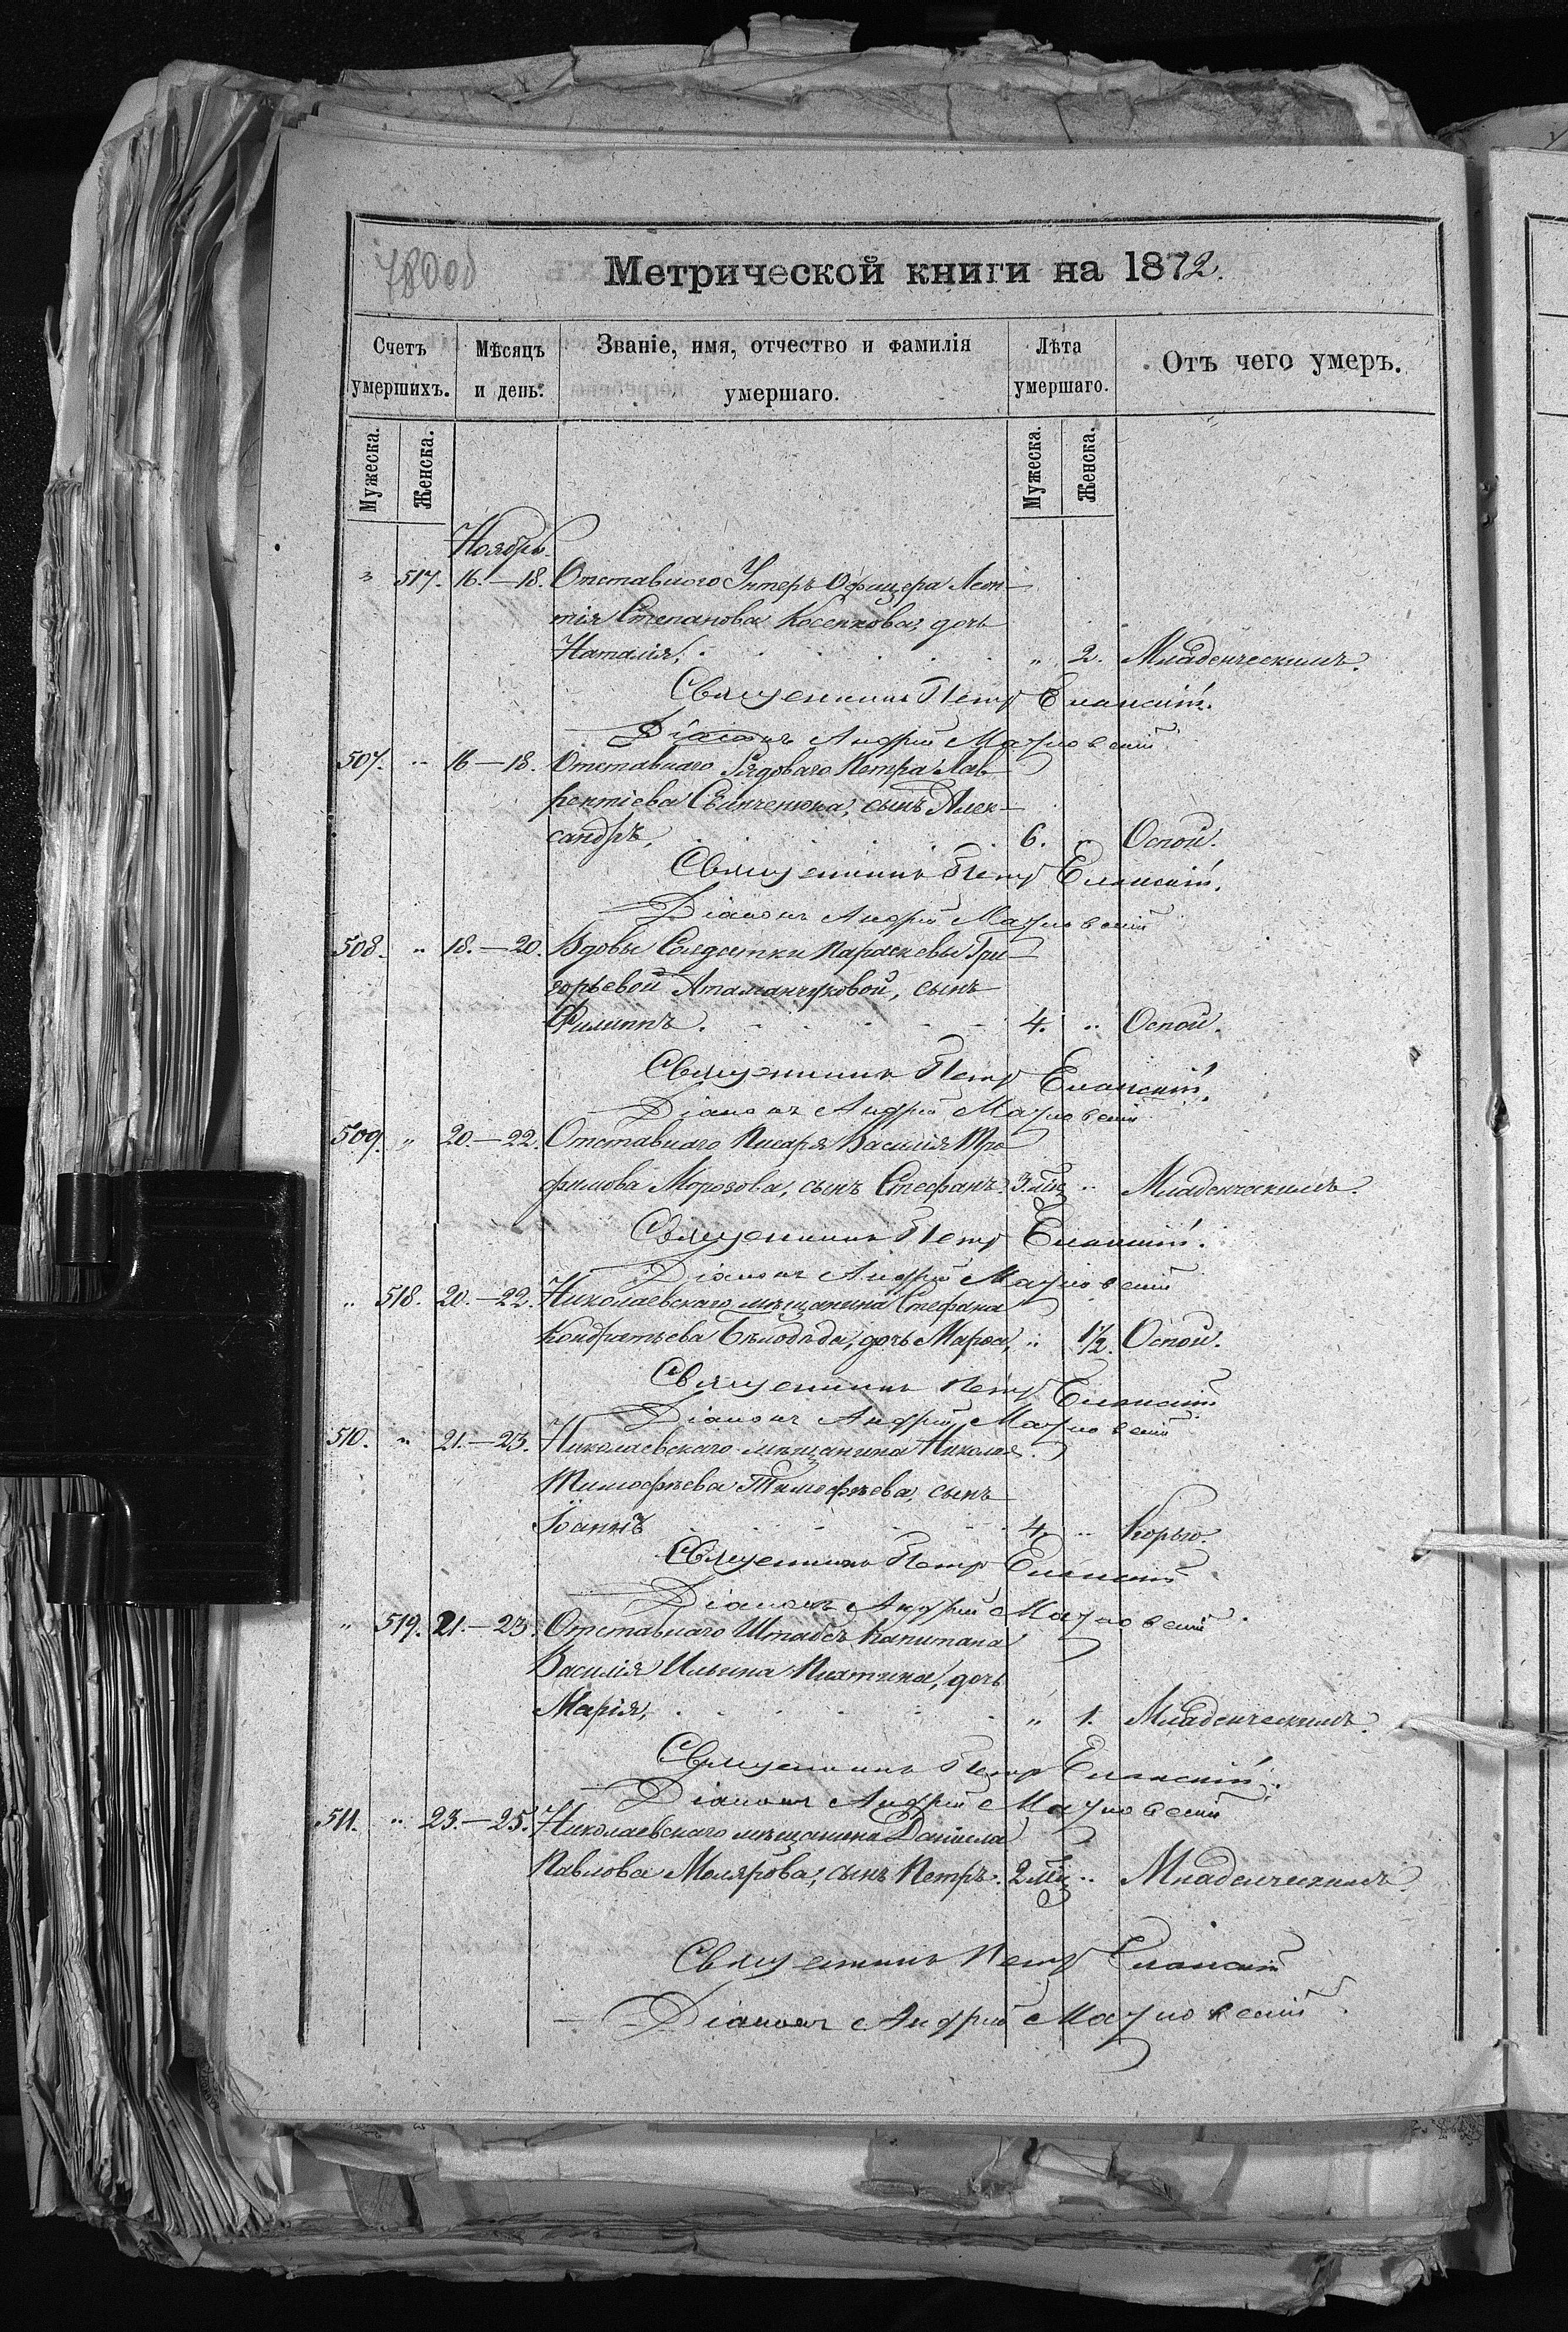 780об
Метрической книги на 1872.
Счетъ умершихъ.
Мѣсяцъ и день.
Званіе, имя, отчество и фамилія умершаго.
Лѣта умершаго.
Отъ чего умеръ.
Мужеска. Женска. Мужеска. Женска.
Ноябрь.
" 517. 16.—18. Отставного Унтеръ Офицера Леон-
тія Степанова Косенкова, дочь
Наталія, " 2. Младенческимъ.
Священникъ Петръ Еланскій.
Діаконъ Андрей
507. " 16—18. Отставнаго Рядоваго Петра Лав-
рентіева сынъ Алек-
сандръ, 6. " Оспой.
Священникъ Петръ Еланскій.
Діаконъ Андрей
508. " 18.—20. Вдовы Солдатки Параскевы Гри-
горьевой Атаманчуковой, сынъ
Филиппъ. 4. " Оспой.
Священникъ Петръ Еланскій.
Діаконъ Андрей
509. " 20.—22. Отставнаго Писаря Василія Тро
фимова Морозова, сынъ Стефанъ. 3. мѣс " Младенческимъ.
Священникъ Петръ Еланскій.
Діаконъ Андрей
" 518. 20.—22. Николаевскаго мѣщанина Стефана
Кондратьева Бѣлодѣда, дочь Марѳа, " 1½. Оспой.
Священникъ Петръ Еланскій
Діаконъ Андрей
510. " 21.—23. Николаевскаго мѣщанина Николая
Тимофѣева Тимофѣева, сынъ
Іоаннъ 4. " Корью.
Священникъ Петръ Еланскій
Діаконъ Андрей
" 519. 21.—23. Отставнаго Штабсъ Капитана
Василія Ильина дочь
Марія, " 1. Младенческимъ.
Священникъ Петръ Еланскій.
Діаконъ Андрей
511. " 23.—25. Николаевскаго мѣщанина Даніила
Павлова Молярова, сынъ Петръ. 2 мѣс " Младенческимъ.
Священникъ Петръ Еланскій
Діаконъ Андрей